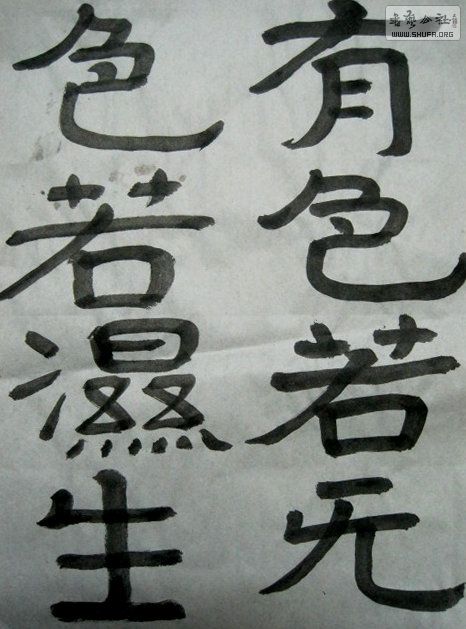 有色若无
色若濕生
WWW.SHUFA.ORG